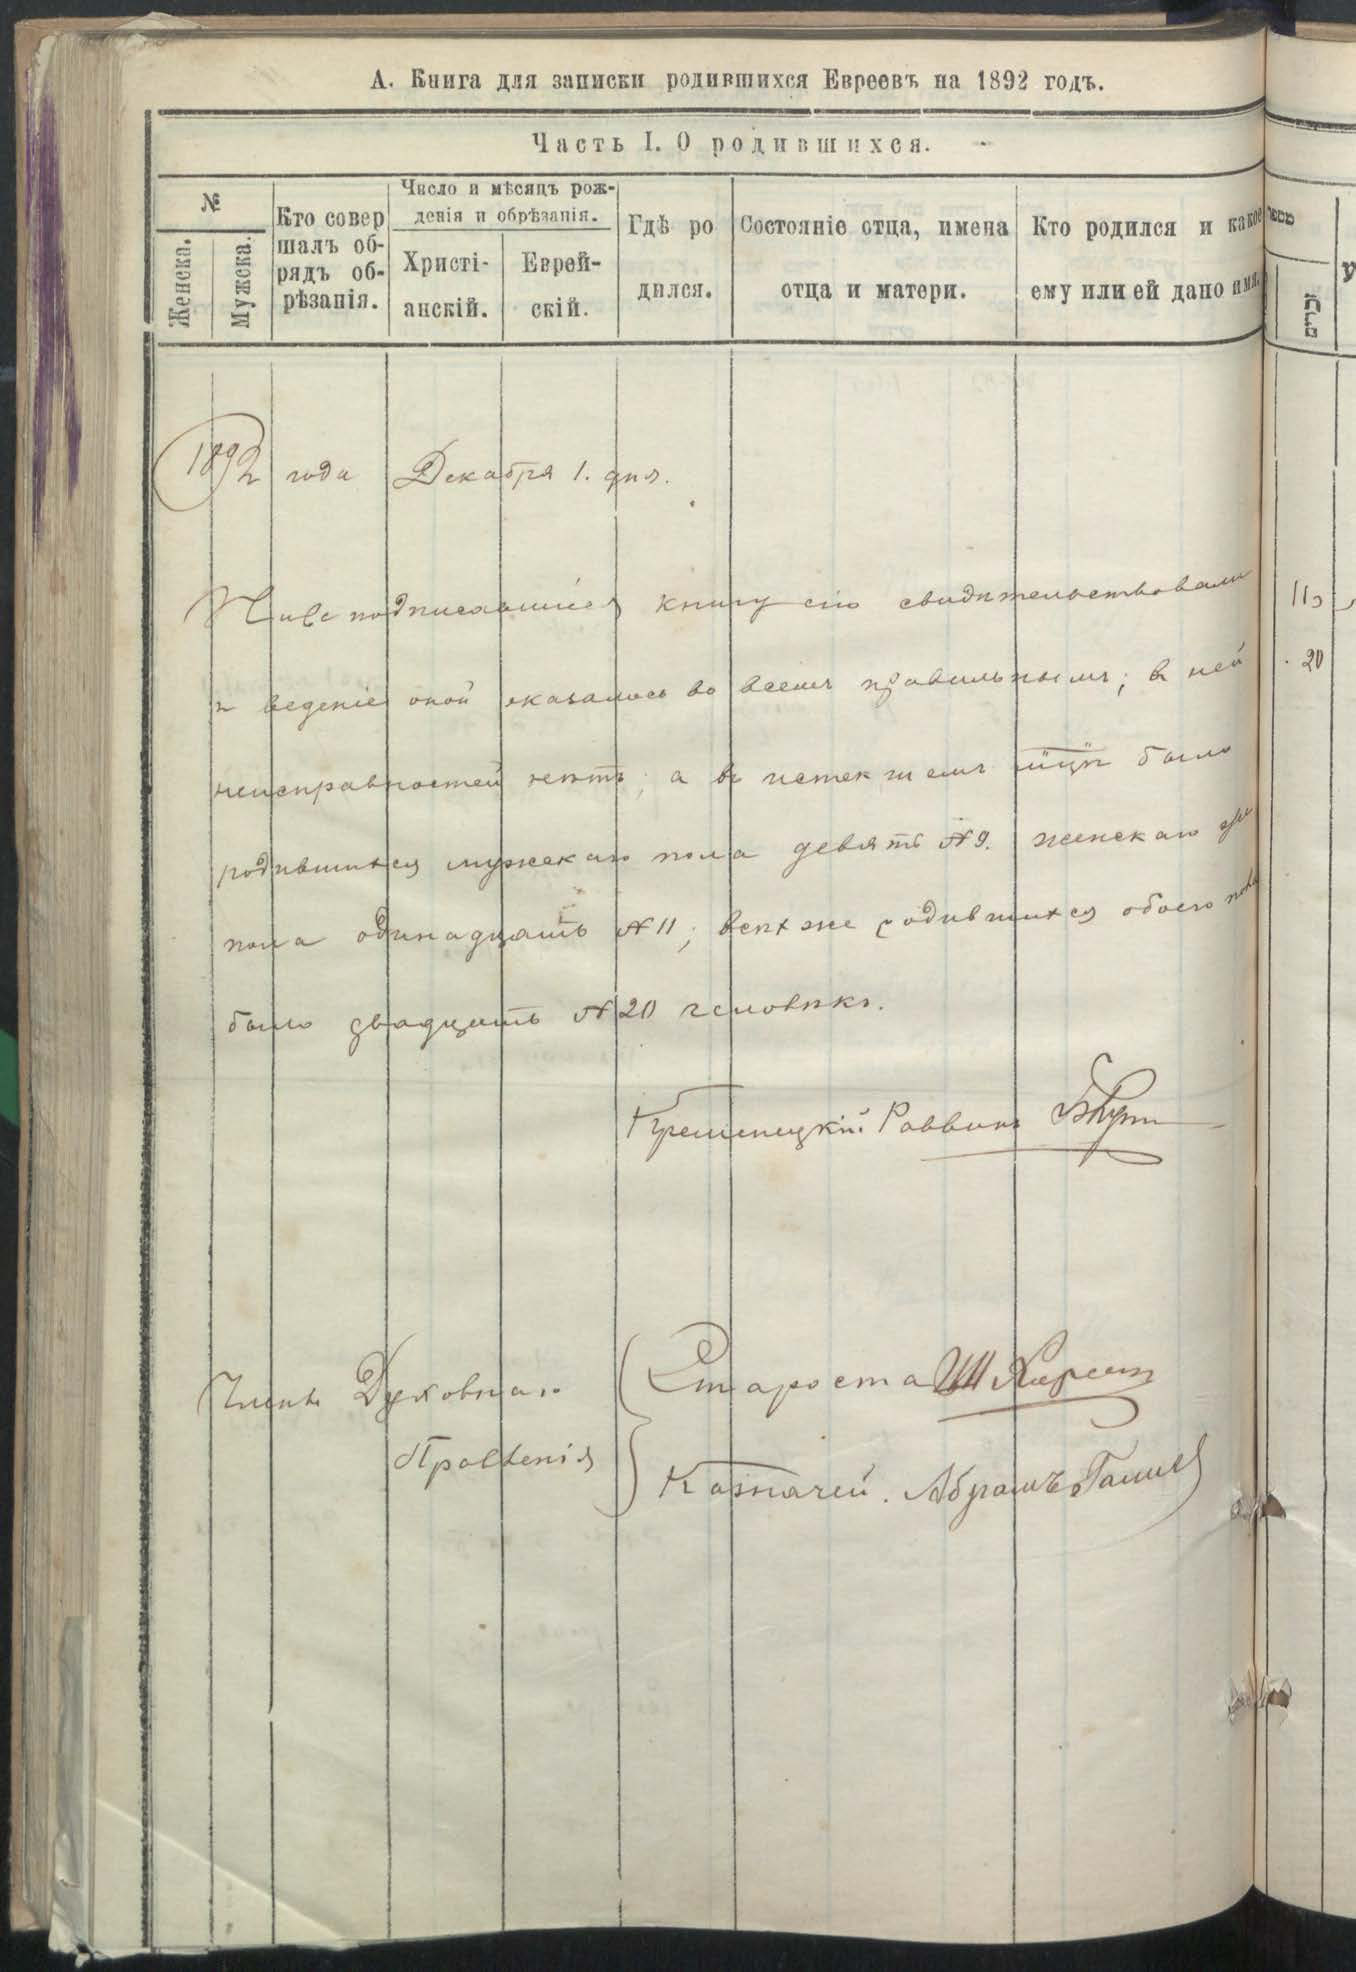 А. Книга для записки родившихся Евреевъ на 1892 годъ.
Часть I. О родившихся.
№
Женска.
Мужска.
Кто совер
шалъ об-
рядъ об-
рѣзанія.
Число и мѣсяцъ рож-
денія и обрѣзанія.
Христі-
анскій.
Еврей-
скій.
Гдѣ ро
дился.
Состояніе отца, имена
отца и матери.
Кто родился и какое
ему или ей дано имя.
1892 года Декабря 1. дня.
Нижеподписавшіеся книгу сію свидѣтельствовали
и веденіе оной оказалось во всемъ правильнымъ; въ ней
неисправностей нетъ; а въ истекшемъ было
родившихся мужскаго пола девять № 9. женскаго же
пола одинадцать № 11; всѣхъ же родившихся обоего пола
было двадцать № 20 человѣкъ.
Кременецкій Раввинъ
Члены Духовнаго
Правленія
Староста
Казначей. Абрамъ
11
20